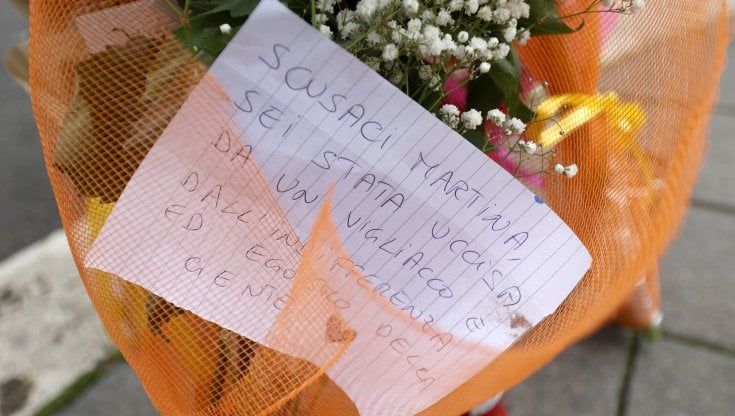 SCUSACI MARTINA,
SEI STATA UCCISA
DA UN VIGLIACCO E
DALL'INDIFFERENZA
ED EGOISMO DELLA
GENTE